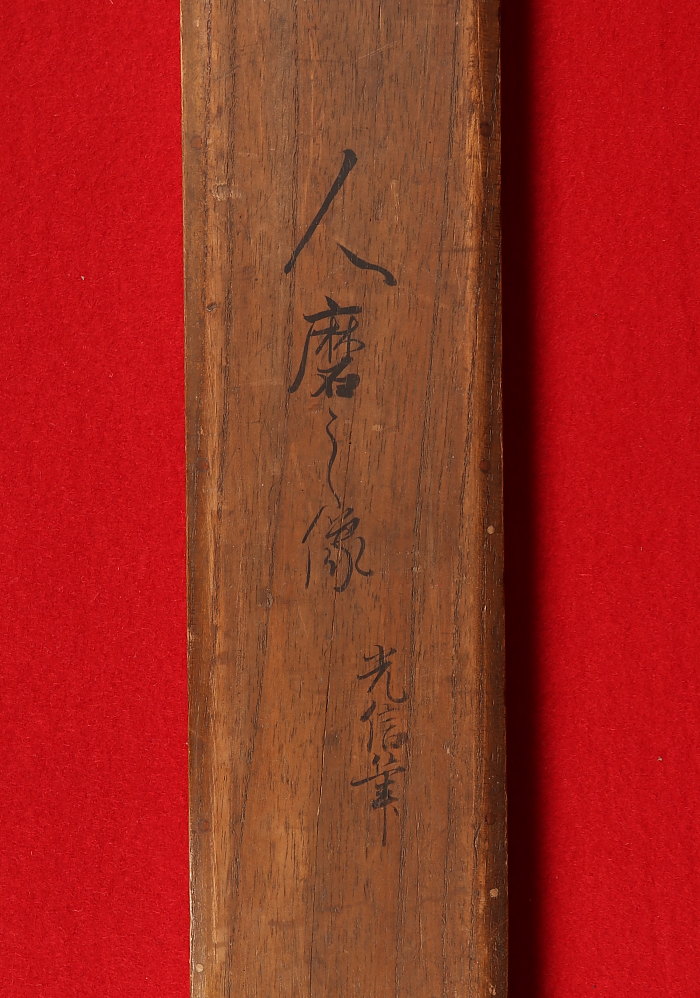 人磨之像
光信筆